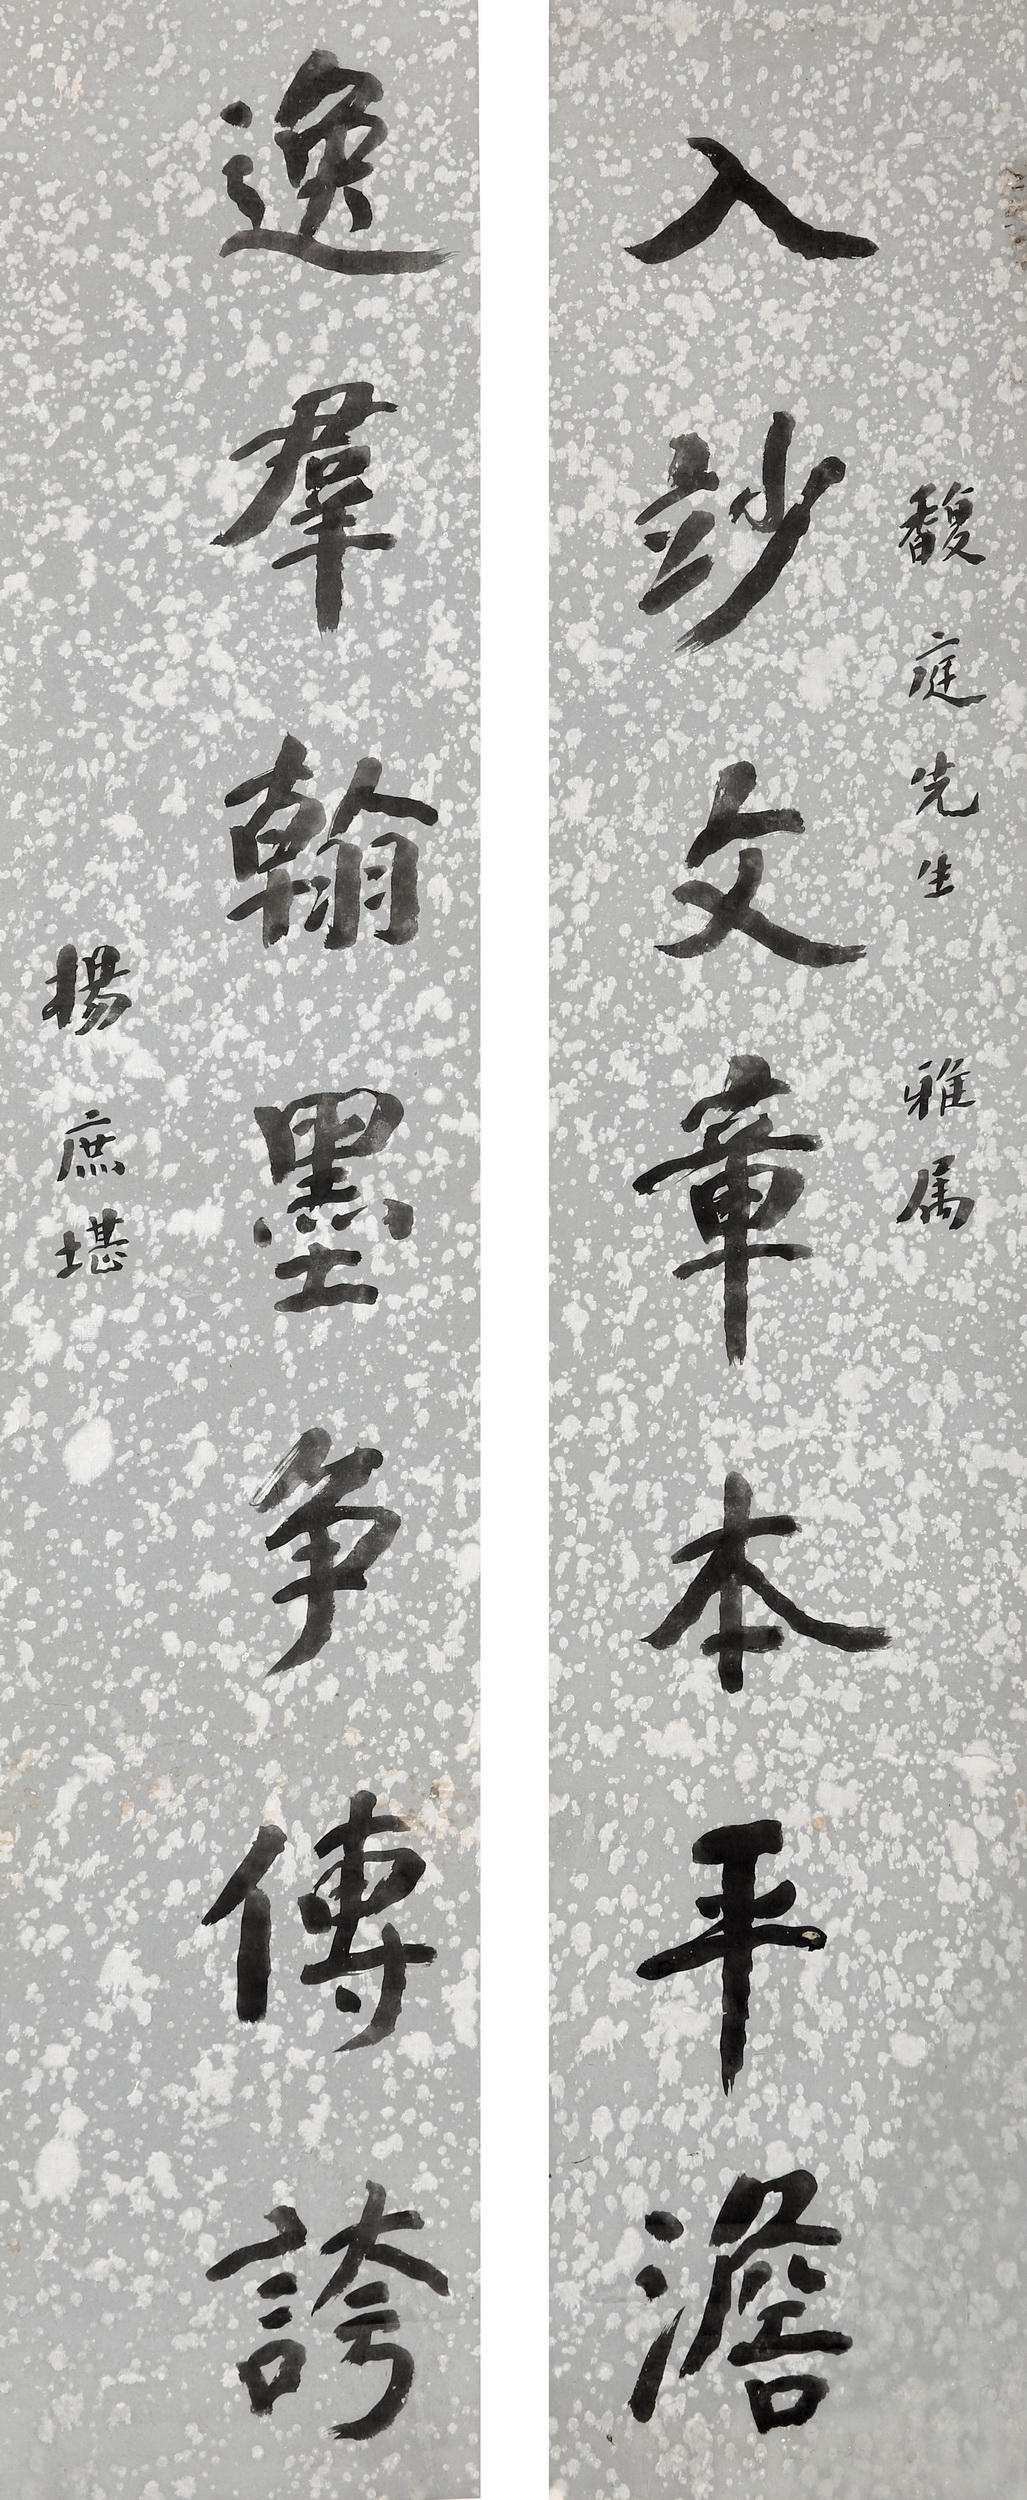 馥庭先生 雅属
入竗文章本平澹
逸羣翰墨争傳誇
楊庶堪